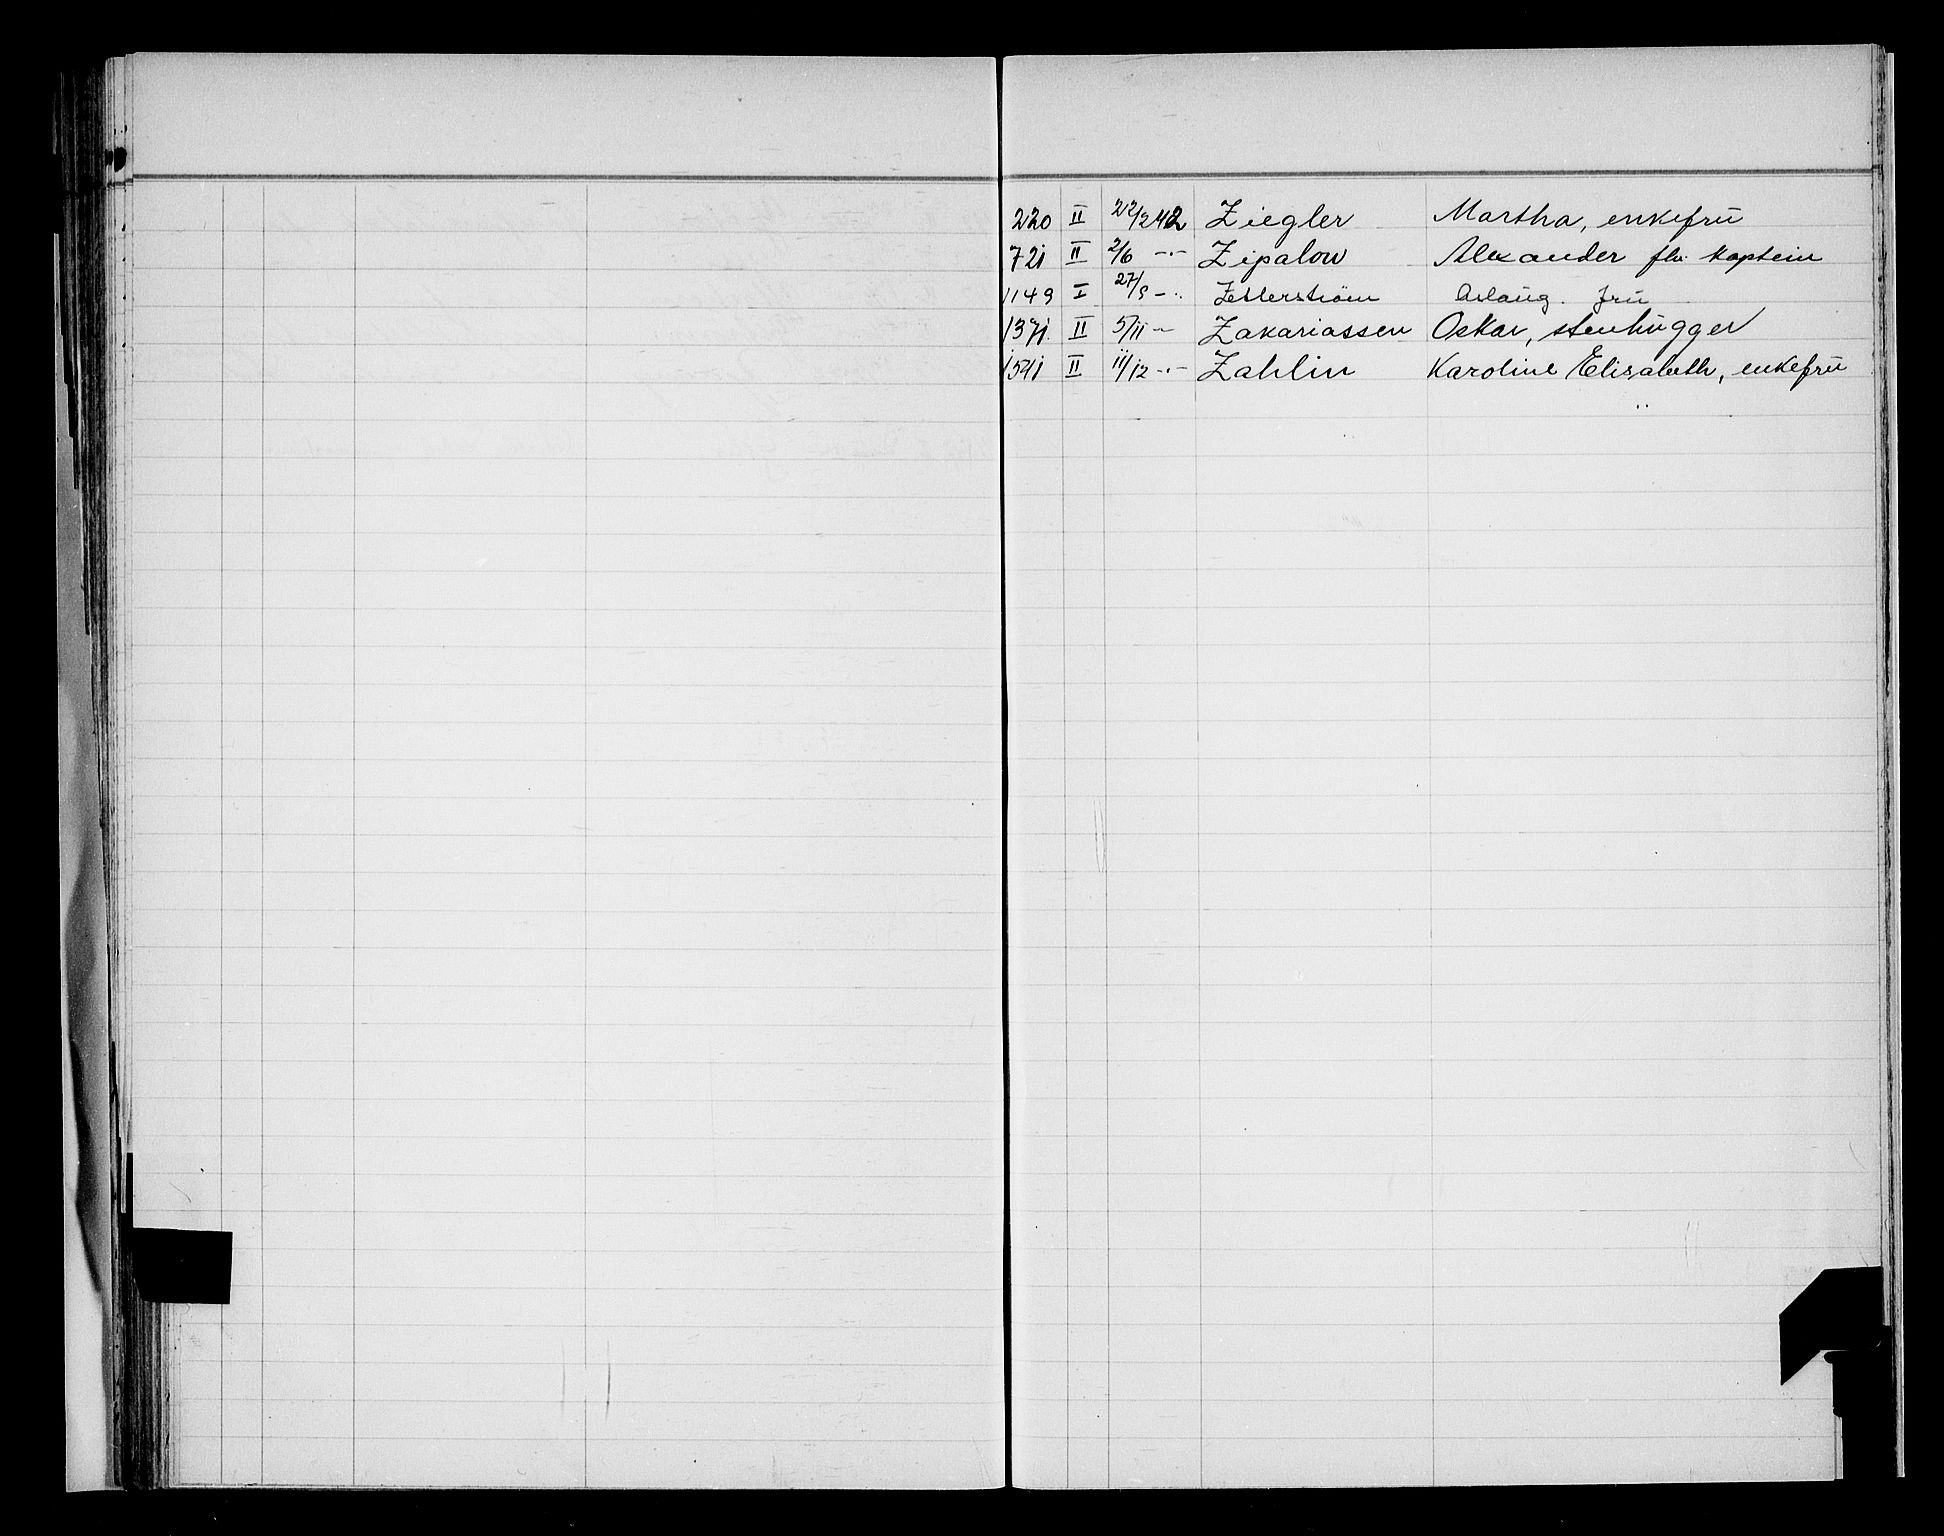 220 II 22/2 42 Ziegler Martha, enkefru
721 II 2/6 -"- Zipalow Alexander fhv. kaptein
1149 I 27/9 -"- Zetterstrøm Aslaug. fru
1371. II 5/11 - Zakariassen Oskar, stenhugger
1541 II 11/12 -"- Zahlin Karoline Elisabeth, enkefru